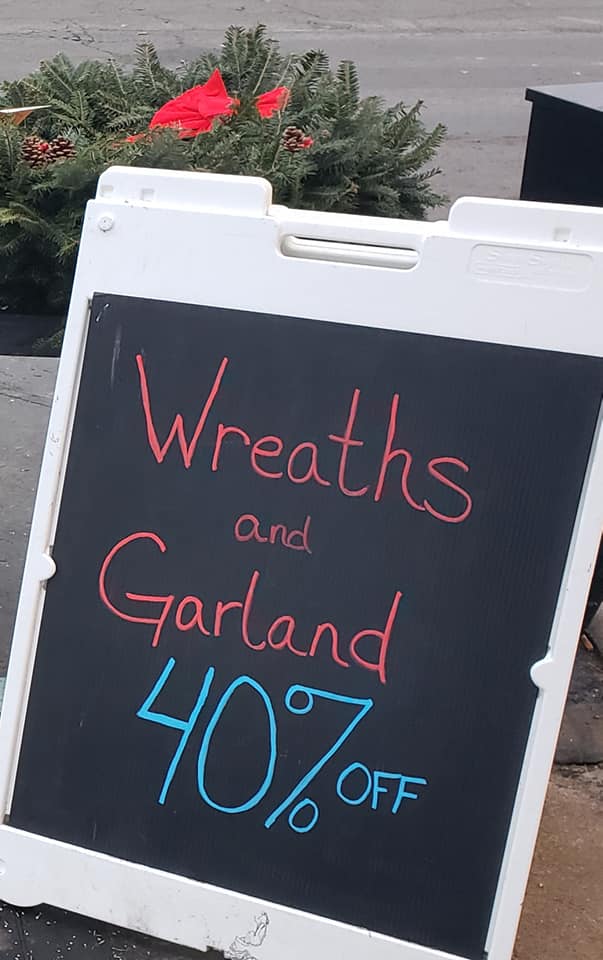 Wreaths
and
Garland
40% OFF